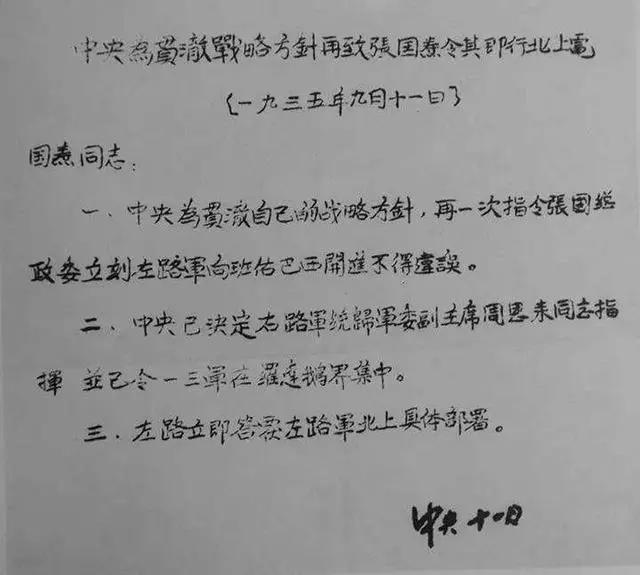 中央為貫澈戰略方針再致張国燾令其即行北上電
(一九三五年九月十一日)
国燾同志:
一.中央為貫澈自己的战略方針,再一次指令張國總
政委立刻左路軍向班佑巴西開進不得違誤。
二.中央已決定右路軍統歸軍委副主席周恩来同志指
揮 並已令一三軍在羅達鵝界集中。
三.左路立即答覆左路軍北上具体部署。
中央 十一日